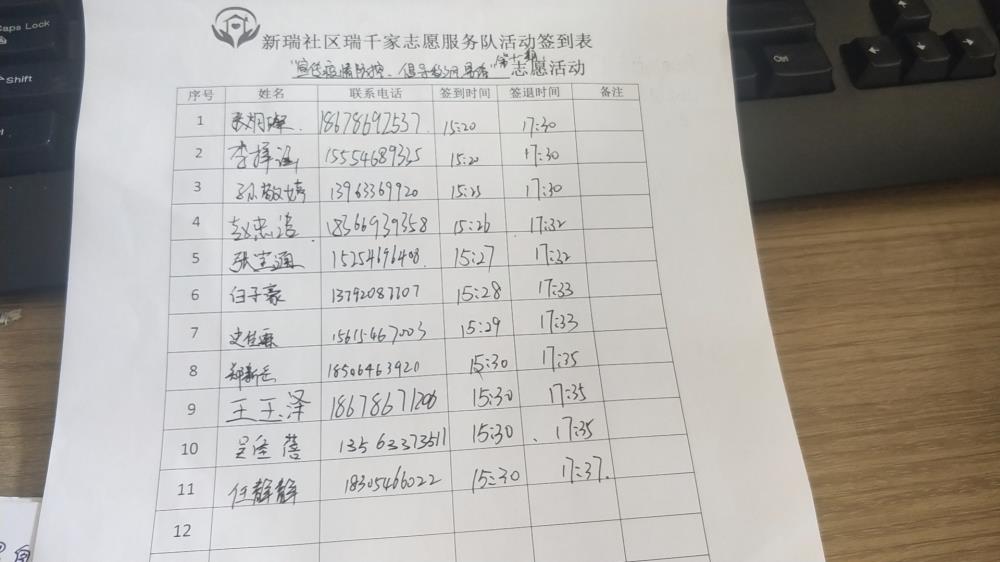 Caps Lock
Shift
Ctrl
新瑞社区瑞千家志愿服务队活动签到表
"宣传疫情防控、倡导 志愿活动
序号 姓名 联系电话 签到时间 签退时间 备注
1 18678697537 15:20 17:30
2 李择涵 15554689335 15:20 17:30
3 孙敬婷 13963369920 15:25 17:30
4 赵忠 18366939358 15:26 17:32
5 张 通 15254696408 15:27 17:32
6 白子豪 13792087707 15:28 17:33
7 史佳 15615467003 15:29 17:33
8 郑新 18506463920 15:30 17:35
9 王玉泽 18678671206 15:30 17:35
10 吴佳蓓 13563373511 15:30 17:35
11 任静静 18305466022 15:30 17:37
12